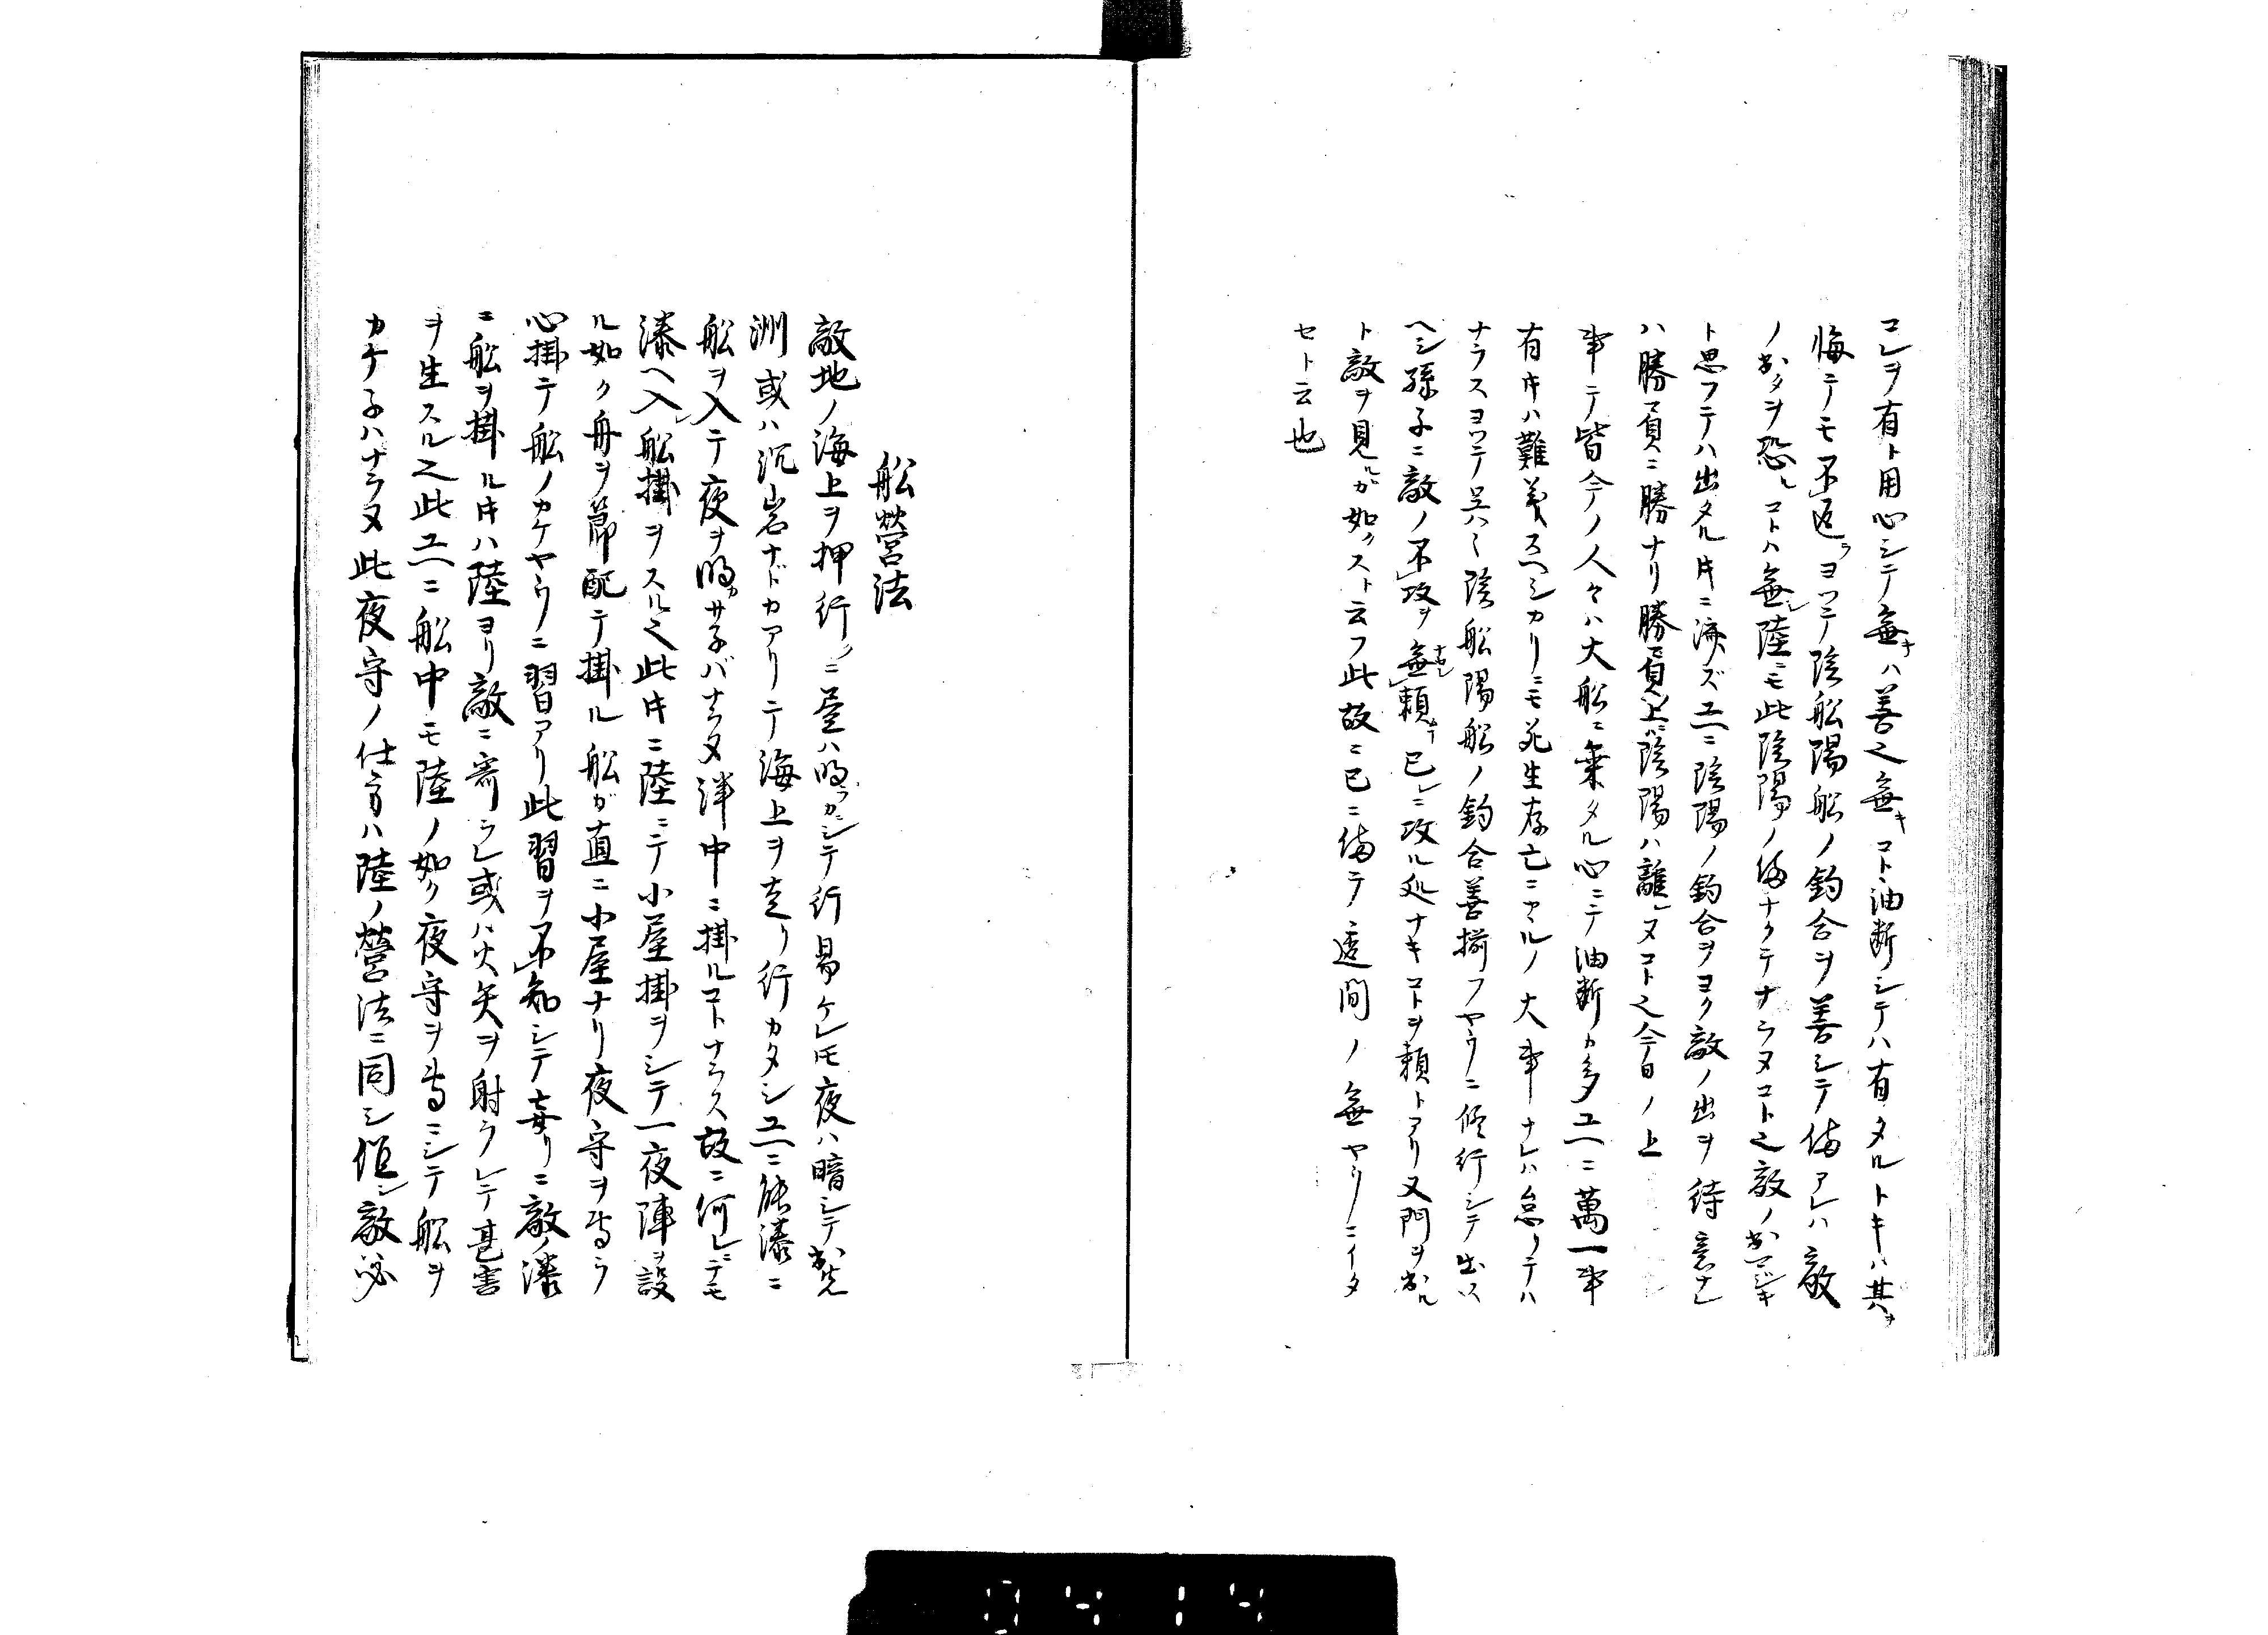 コレヲ有ト用心シテ無ナハ善之無キコト油断シテハ有タルトキハ其ヲ
悔テモ不返ラヨツテ陰船陽船ノ釣合ヲ善シテ備アレハ敵
ノ出タヲ恐レコトハ無シ陸ニモ此陰陽ノ備ナクテナラヌコト之敵ノ出マジキ
ト思フテハ出タル时ニ済ズ故ニ陰陽ノ釣合ヲヨク敵ノ出ヲ待意ナレ
ハ勝負ニ勝ナリ勝負ノ上ニ陰陽ハ離レヌコト之今日ノ上
事テ皆今ノ人々ハ大船ニ乗タル心ニテ油断カ多ユヘニ萬一事
有时ハ難義スヘシカリニモ死生存亡ニアルノ大事ナレハ怠リテハ
ナラスヨツテ呉々陰船陽船ノ釣合善揃フヤウニ修行シテ出ス
ヘシ孫子ニ敵ノ不攻ヲ無頼ナ已ニ攻ル処ナキコトヲ頼トアリ又門ヲ出ル
ト敵ヲ見ルガ如クスト云フ此故ニ已ニ備テ透間ノ無ヤウニイタ
セト云也
船営法
敵地ノ海上ヲ押行ニ昼ハ明ラカニシテ行易ケレ𪜈夜ハ暗シテ出先
洲或ハ沉岩ナドカアリテ海上ヲ走リ行カタシユヘニ能湊ニ
船ヲ入テ夜ヲ明カサ子バナラヌ洋中ニ掛ルコトナラス故ニ何レニテモ
湊ヘ入レ船掛ヲスル之此时ニ陸ニテ小屋掛ヲシテ一夜陣ヲ設
ル如ク舟ヲ節配テ掛ル船ガ直ニ小屋ナリ夜守ヲ専ラ
心掛テ船ノカケヤウニ習アリ此習ヲ不知シテ妄リニ敵ノ湊
ニ船ヲ掛ル时ハ陸ヨリ敵ニ寄ラレ或ハ火矢ヲ射ラレテ甚害
ヲ生スル之此ユヘニ船中モ陸ノ如ク夜守ヲ専ニシテ船ヲ
カケ子ハナラヌ此夜守ノ仕方ハ陸ノ營法ニ同シ但シ敵必